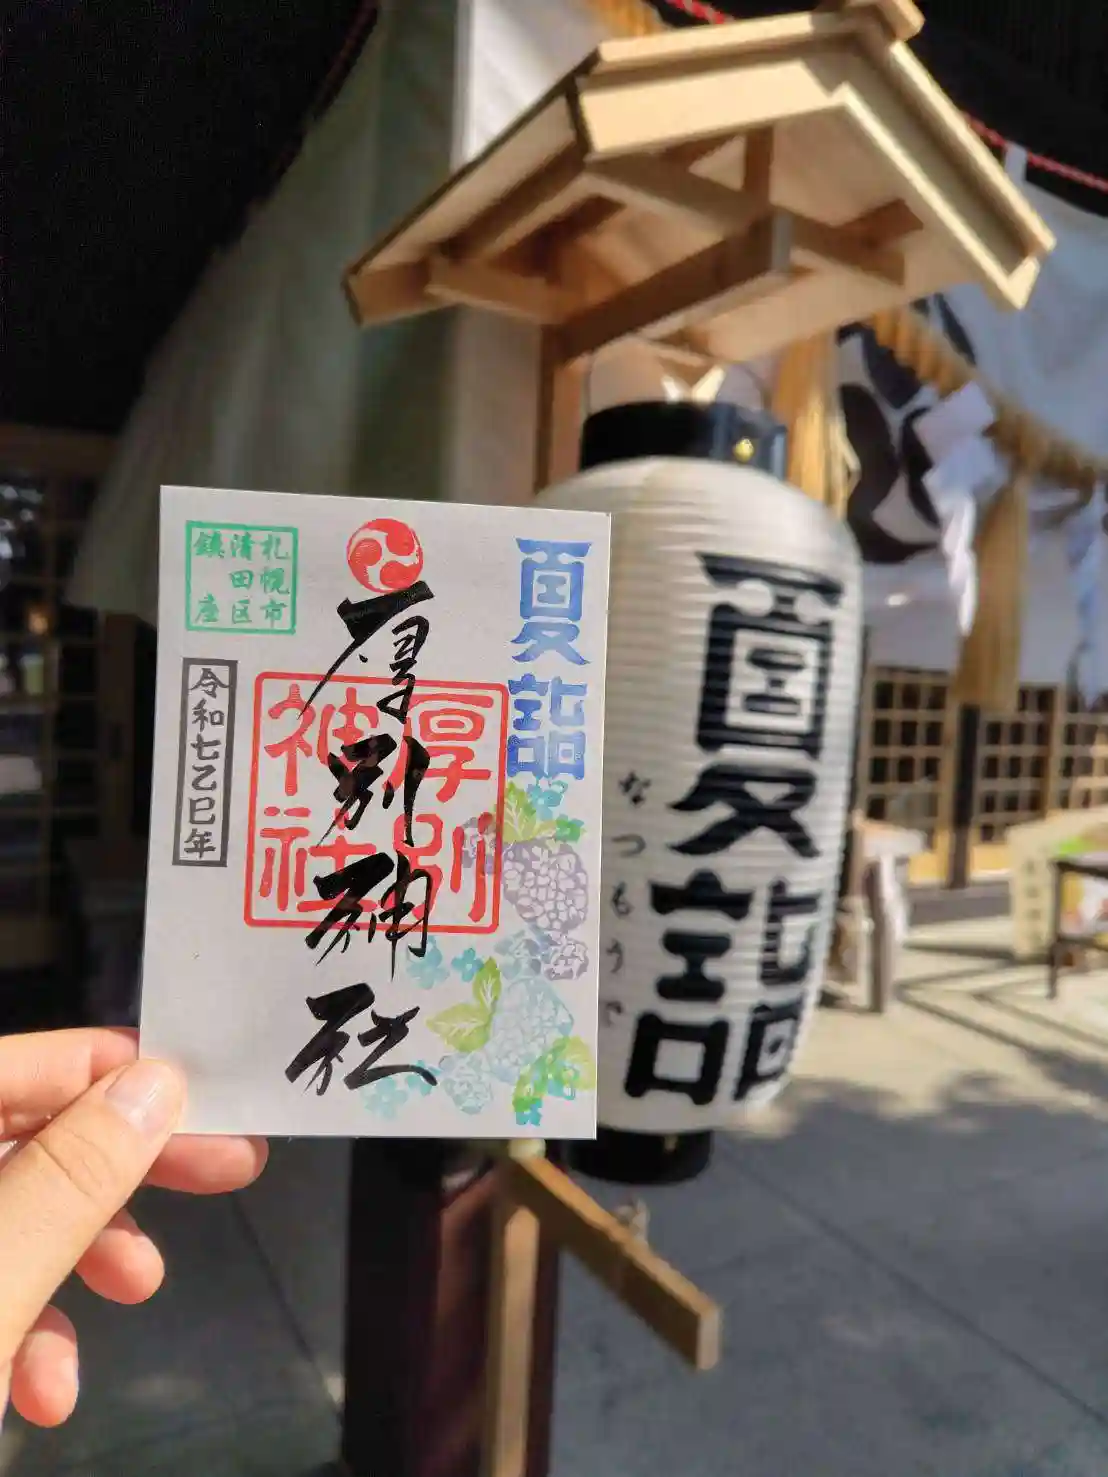 夏詣
厚別神社
厚別
神社
札幌市
清田区
鎮座
令和七乙巳年
夏詣
なつもうで